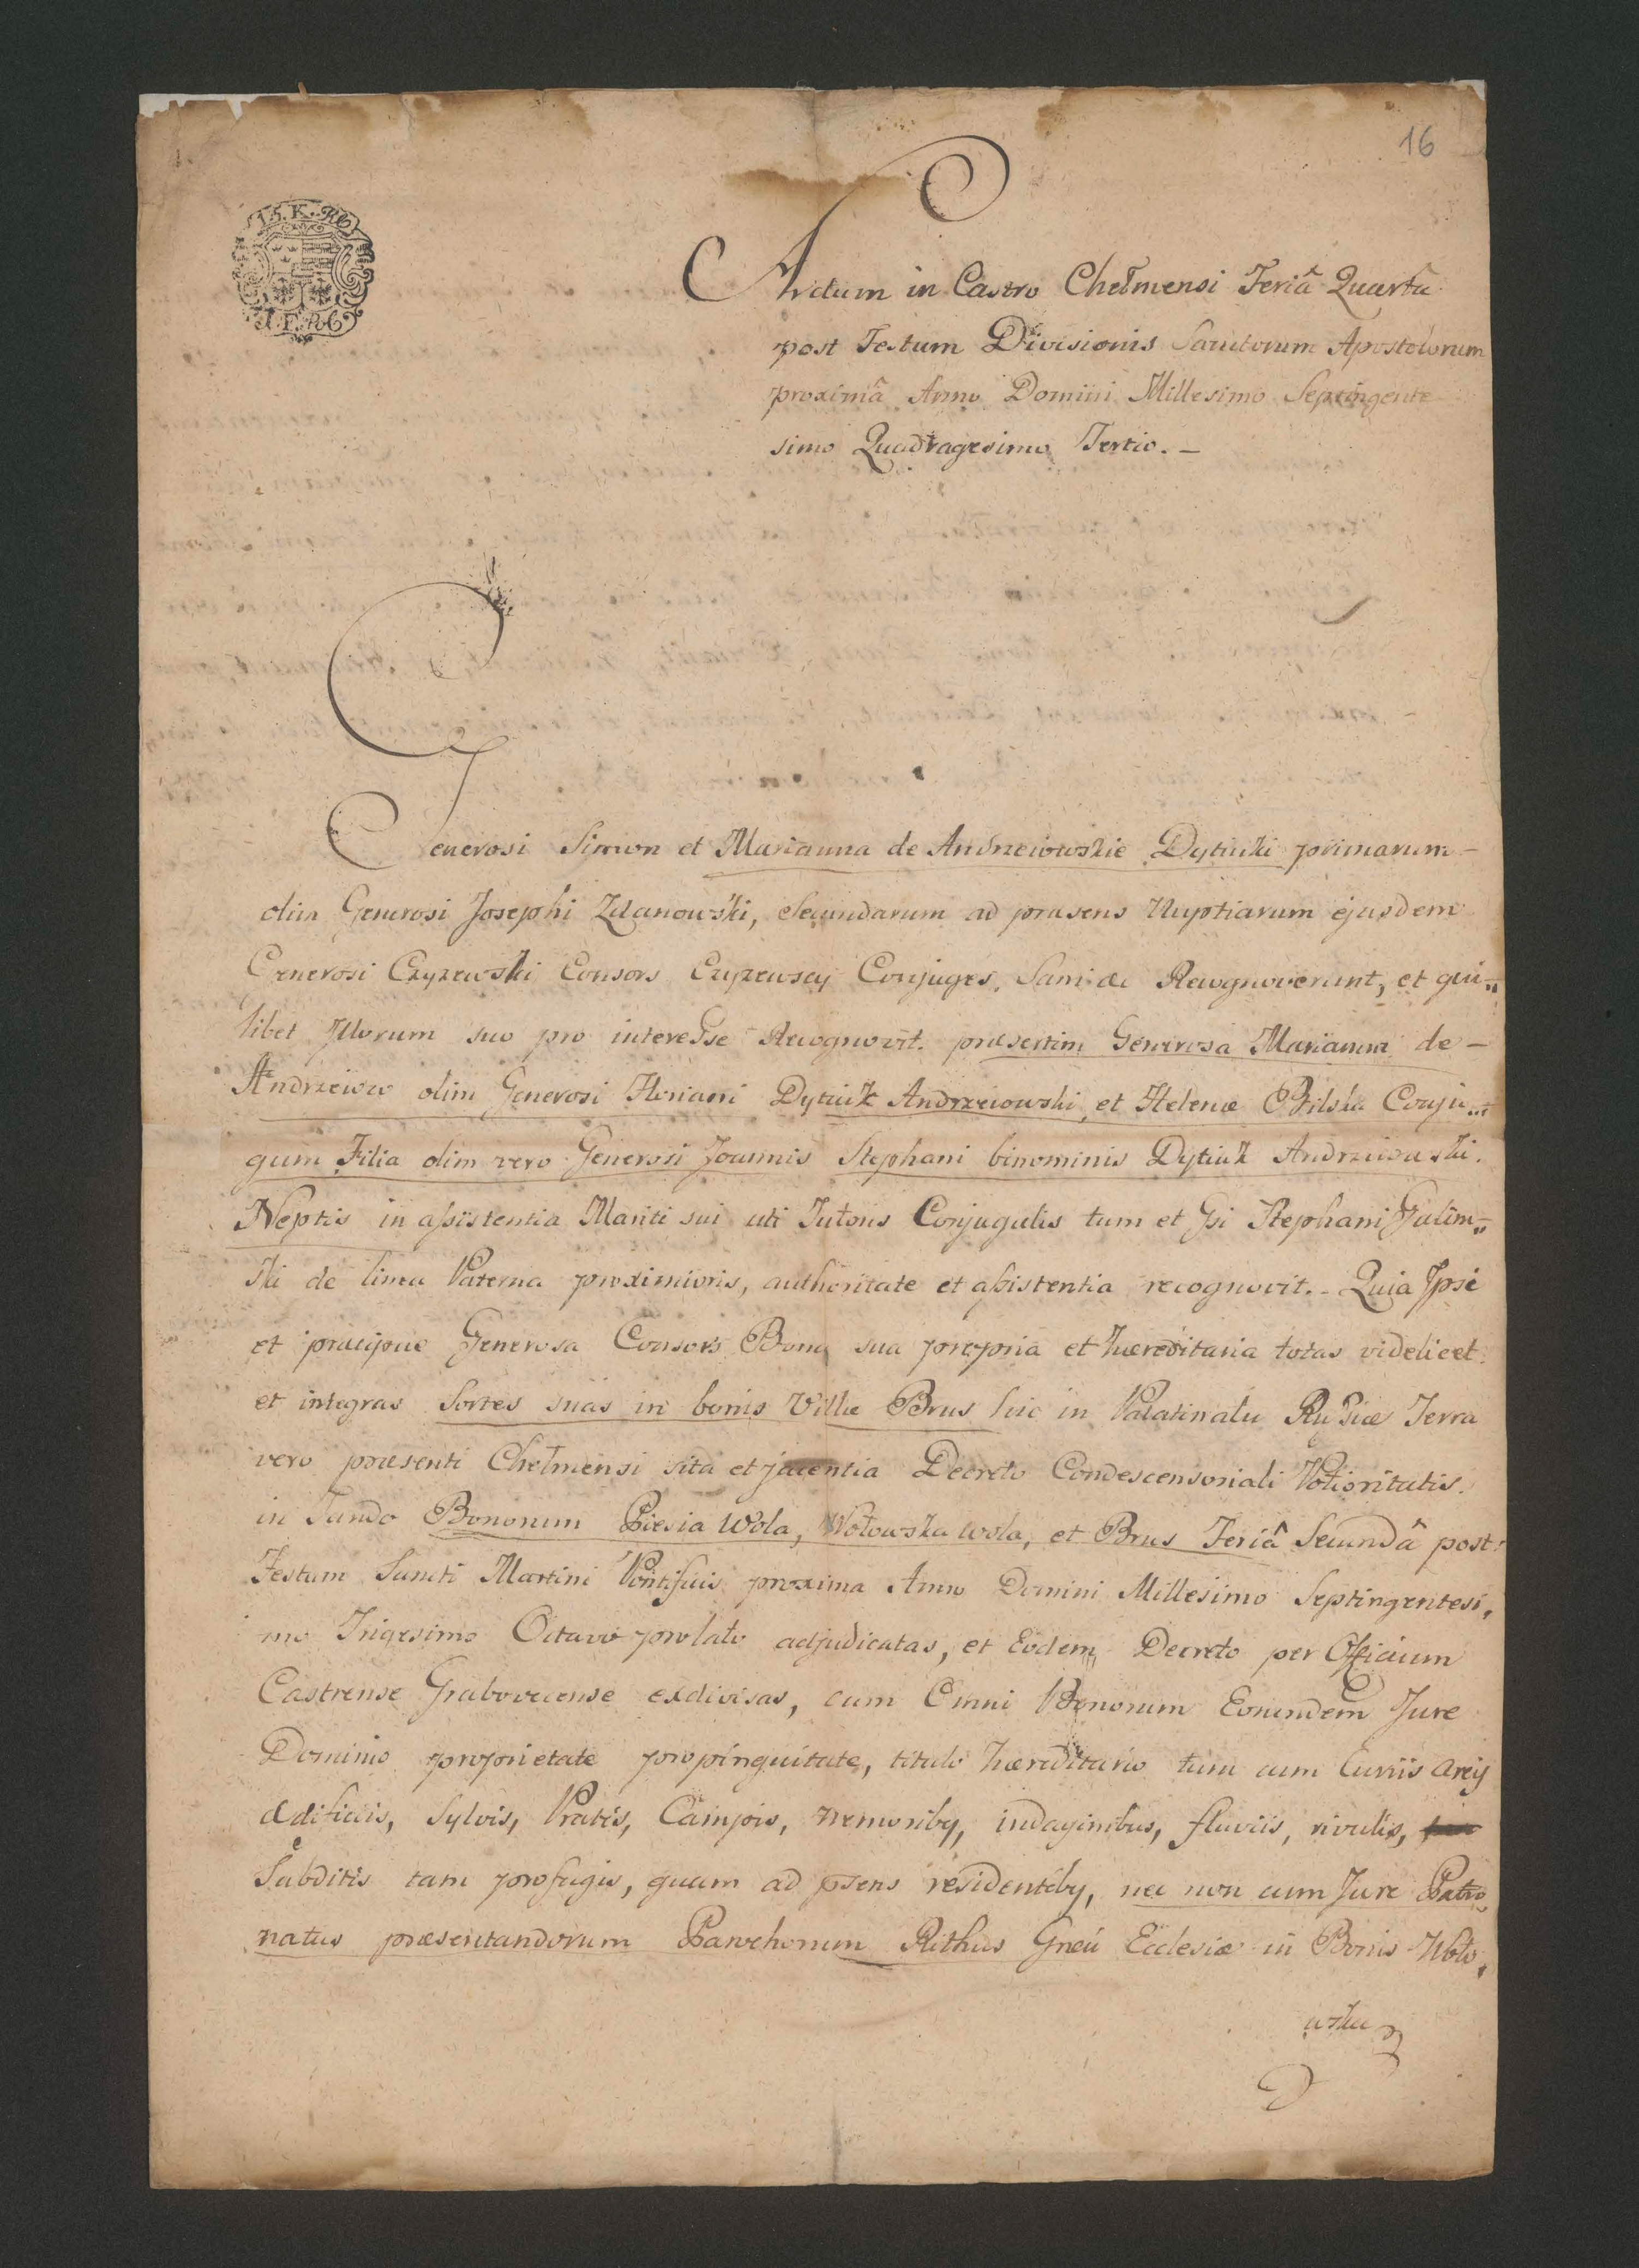 16
15. K. R
I. F.
Actum in Castro Chełmensi Feriâ Quarta
post Festum Divisionis Sanctorum Apostolorum
proximâ Anno Domini Millesimo Septingente
simo Quadragesimo Tertio. –
Generosi Simon et Marianna de Andrzeiowskie Dytiuki primarum –
olim Generosi Josephi Zdanowski, Secundarum ad præsens Nuptiarum ejusdem
Generosi Czyzewski Consors Czyzewscy Conjuges, Sani &c Recognoverunt, et qui„
libet Illorum suo pro interesse Recognovit. præsertim Generosa Marianna de –
Andrzeiow olim Generosi Floriani Dytiuk Andrzeiowski, et Helenæ Bilska Conju„
gum Filia olim vero Generosi Joannis Stephani binominis Dytiuk Andrzeiowski.
Neptis in assistentia Mariti sui uti Tutoris Conjugalis tum et Gsi Stephani Galim„
ski de linea Paterna proximioris, authoritate et assistentia recognovit. – Quia Ipsi
et præcipue Generosa Consors Bona sua propria et hæreditaria totas videlicet
et integras Sortes suas in bonis Villæ Brus hic in Palatinatu Russiæ Terra
vero præsenti Chełmensi sita et jacentia Decreto Condescensoriali Potioritatis.
in Fundo Bonorum Piesia Wola, Wołowska wola, et Brus Feriâ Secundâ post
Festum Sancti Martini Pontificis proxima Anno Domini Millesimo Septingentesi„
mo Trigesimo Octavo prolato adjudicatas, et Eodem Decreto per Officium
Castrense Grabovecense exdivisas, cum Omni Bonorum Eorundem Jure
Dominio proprietate propinquitate, titulo hæreditario tum cum Curiis areis
ædificiis, Sylvis, Pratis, Campis, nemoriby, indaginibus, fluviis, rivulis,
Subditis tam profugis, quam ad psens residentiby, nec non cum Jure Patro„
natus præsentandorum Parochorum Rithus Græci Ecclesiæ in Bonis Woło„
wska